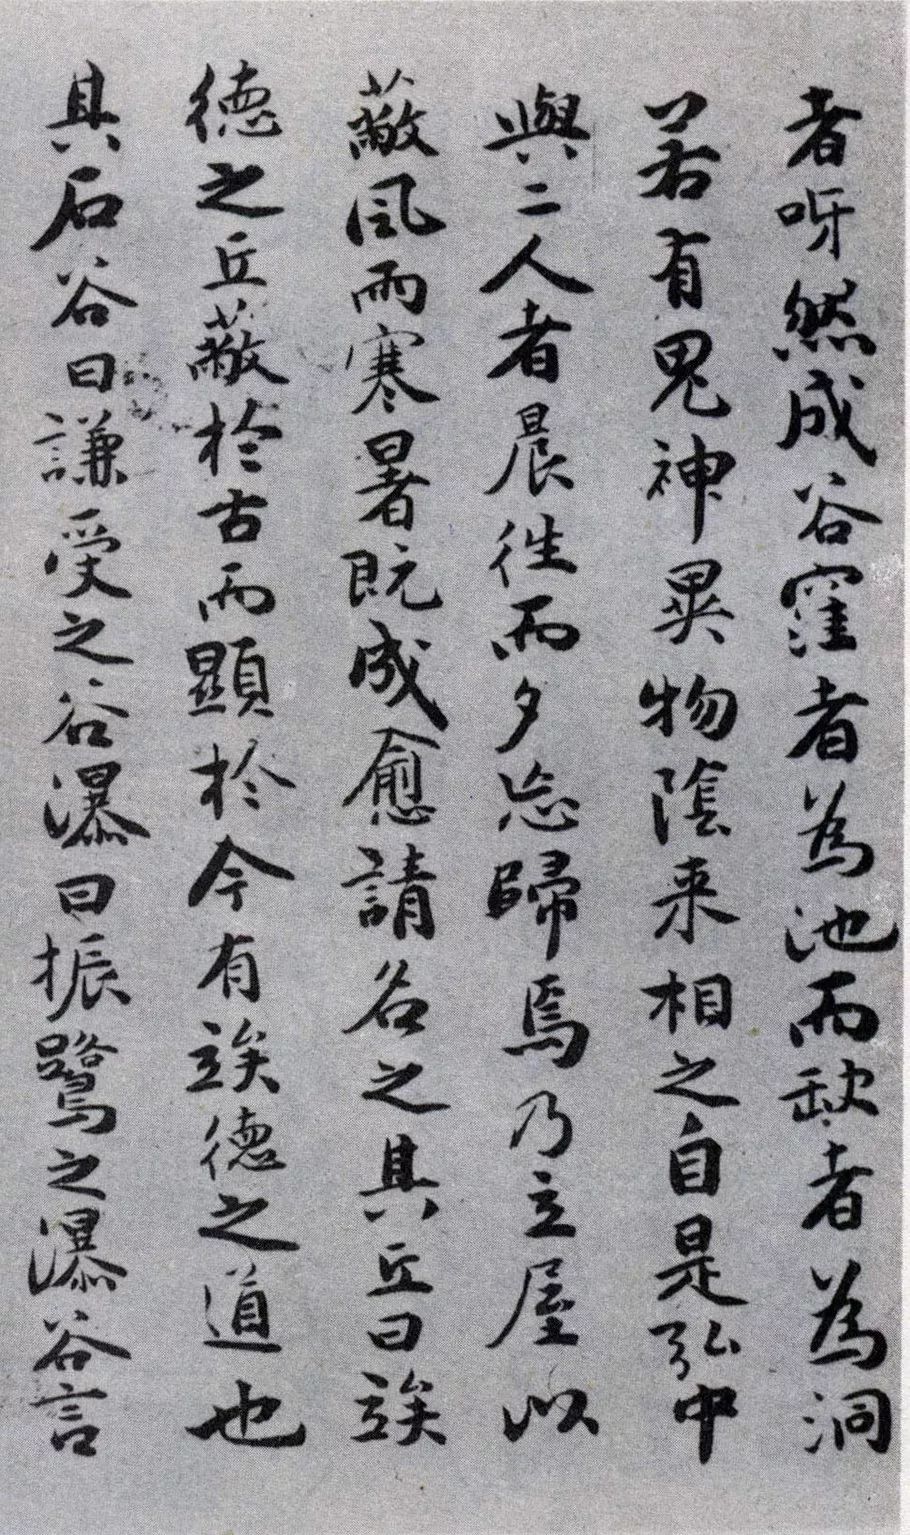 者呀然成谷窪者為池而缺者為洞
若有鬼神異物陰来相之自是弘中
與二人者晨徃而夕忘歸焉乃立屋以
蔽風雨寒暑既成愈請名之其丘曰竢
德之丘蔽於古而顯於今有竢德之道也
其石谷曰謙受之谷瀑曰振鷺之瀑谷言